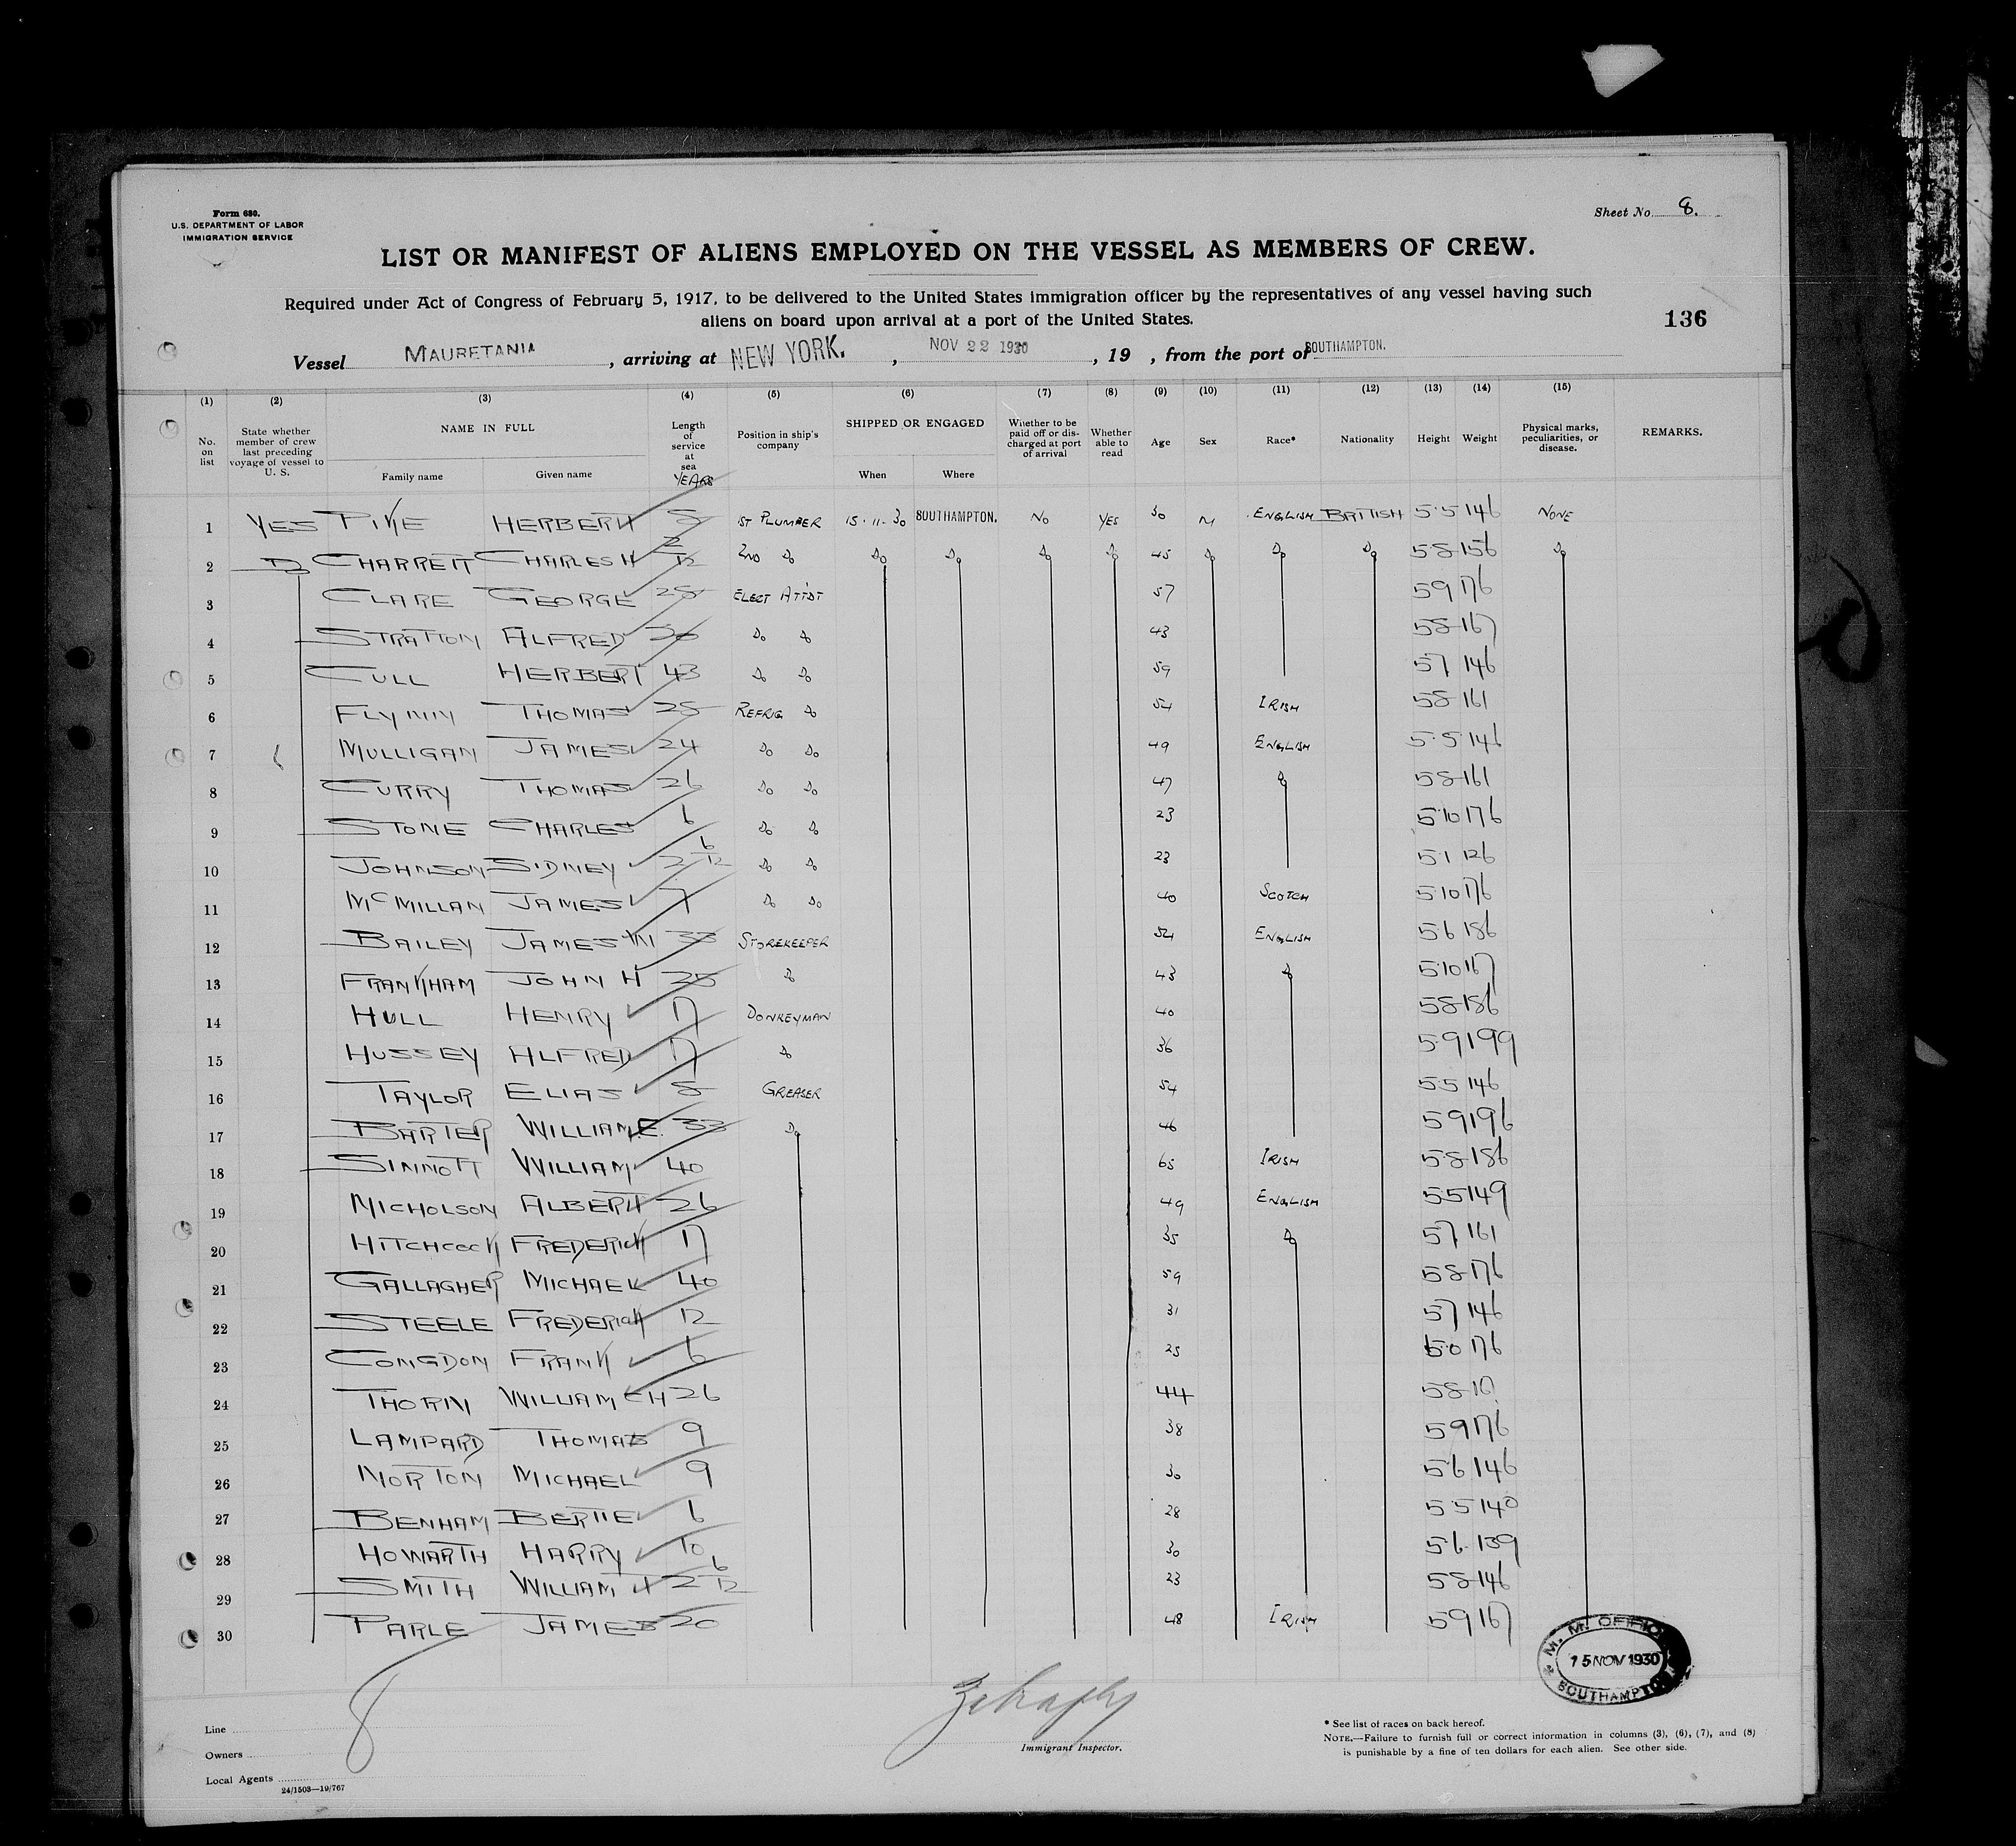 Form 680.
U.S. DEPARTMENT OF LABOR
IMMIGRATION SERVICE
Sheet No 8.
LIST OR MANIFEST OF ALIENS EMPLOYED ON THE VESSEL AS MEMBERS OF CREW.
Required under Act of Congress of February 5, 1917, to be delivered to the United States immigration officer by the representatives of any vessel having such
aliens on board upon arrival at a port of the United States.
136
Vessel MAURETANIA, arriving at NEW YORK., NOV 22 1930, 19 , from the port of SOUTHAMPTON.
(1) (2) (3) (4) (5) (6) (7) (8) (9) (10) (11) (12) (13) (14) (15)
No. on list State whether member of crew last preceding voyage of vessel to U. S. NAME IN FULL Family name Given name Length of service at sea YEARS Position in ship's company SHIPPED OR ENGAGED When Where Whether to be paid off or discharged at port of arrival Whether able to read Age Sex Race* Nationality Height Weight Physical marks, peculiarities, or disease. REMARKS.
1 YES PIKE HERBERT 5 1ST PLUMBER 15.11.30 SOUTHAMPTON. NO YES 30 M ENGLISH BRITISH 5.5 146 NONE
2 Do CHARRETT CHARLES H 2/12 2ND Do Do Do Do Do 45 Do Do Do 5.8 156 Do
3 CLARE GEORGE 25 ELECT ATTDT 57 5 9 176
4 STRATTON ALFRED 30 Do Do 43 5 8 167
5 CULL HERBERT 43 Do Do 59 5 7 146
6 FLYNN THOMAS 25 REFRIG Do 54 IRISH 5 8 161
7 MULLIGAN JAMES 24 Do Do 49 ENGLISH 5.5 146
8 CURRY THOMAS 26 Do Do 47 Do 5 8 161
9 STONE CHARLES 6 Do Do 23 5.10 176
10 JOHNSON SIDNEY 2 6/12 Do Do 23 5.1 126
11 McMILLAN JAMES 7 Do Do 40 SCOTCH 5.10 176
12 BAILEY JAMES W 33 STOREKEEPER 54 ENGLISH 5.6 186
13 FRANKHAM JOHN H 25 Do 43 Do 5.10 167
14 HULL HENRY 17 DONKEYMAN 40 5.8 186
15 HUSSEY ALFRED 17 Do 36 5.9 199
16 TAYLOR ELIAS 8 GREASER 54 5.5 146
17 BARTER WILLIAM.E. 33 Do 46 5 9 196
18 SINNOTT WILLIAM 40 65 IRISH 5.8 186
19 NICHOLSON ALBERT 26 49 ENGLISH 5.5 149
20 HITCHCOCK FREDERICK 17 35 Do 5 7 161
21 GALLAGHER MICHAEL 40 59 5 8 176
22 STEELE FREDERICK 12 31 5 7 146
23 CONGDON FRANK 6 25 176
24 THORN WILLIAM C H 26 44 5 8
25 LAMPARD THOMAS 9 38 5 9 176
26 NORTON MICHAEL 9 30 5.6 146
27 BENHAM BERTIE 6 28 5.5 140
28 HOWARTH HARRY 10 30 5.6 139
29 SMITH WILLIAM 2 6/12 23 5 8 146
30 PARLE JAMES 20 48 IRISH 5 9 167
M. M. OFFICE
15 NOV 1930
SOUTHAMPTON
8
Line
Owners
Local Agents
24/1503—19/767
Immigrant Inspector.
* See list of races on back hereof.
NOTE.—Failure to furnish full or correct information in columns (3), (6), (7), and (8)
is punishable by a fine of ten dollars for each alien. See other side.